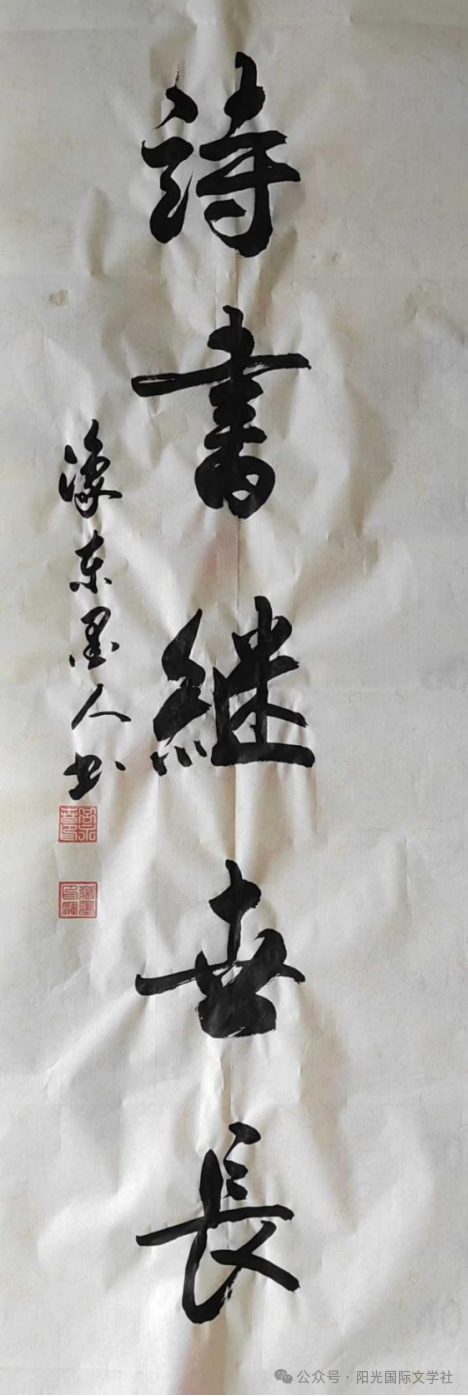 詩書継世長
豫东墨人书
公众号·阳光国际文学社